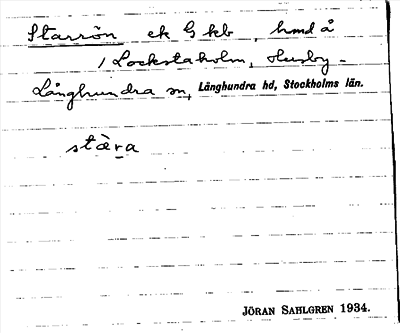 Starrön ek G kb, hmd å
/ Lockstaholm, Husby-
Långhundra sn, Långhundra hd, Stockholms län.
stàra
JÖRAN SAHLGREN 1934.